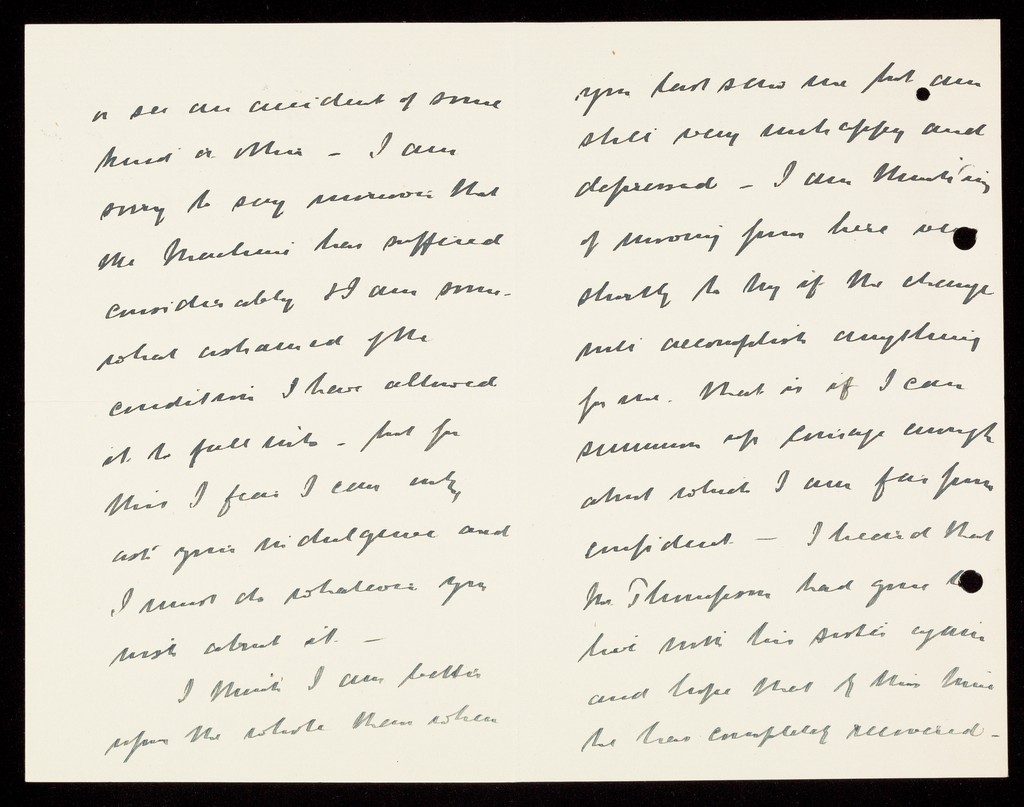 or see an accident of some
kind or other - I am
sorry to say moreover that
the Machine has suffered
considerably & I am some-
what ashamed of the
condition I have allowed
it to fall into - but for
this I fear I can only
ask your indulgence and
I must do whatever you
wish about it. -
I think I am better
upon the whole than when
you last saw me but am
still very unhappy and
depressed - I am thinking
of moving from here very
shortly to try if the change
will accomplish anything
for me. That is if I can
summon up courage enough
about which I am far from
confident - I heard that
Mr Thompson had gone to
live with his sister again
and hope that by this time
he has completely recovered -